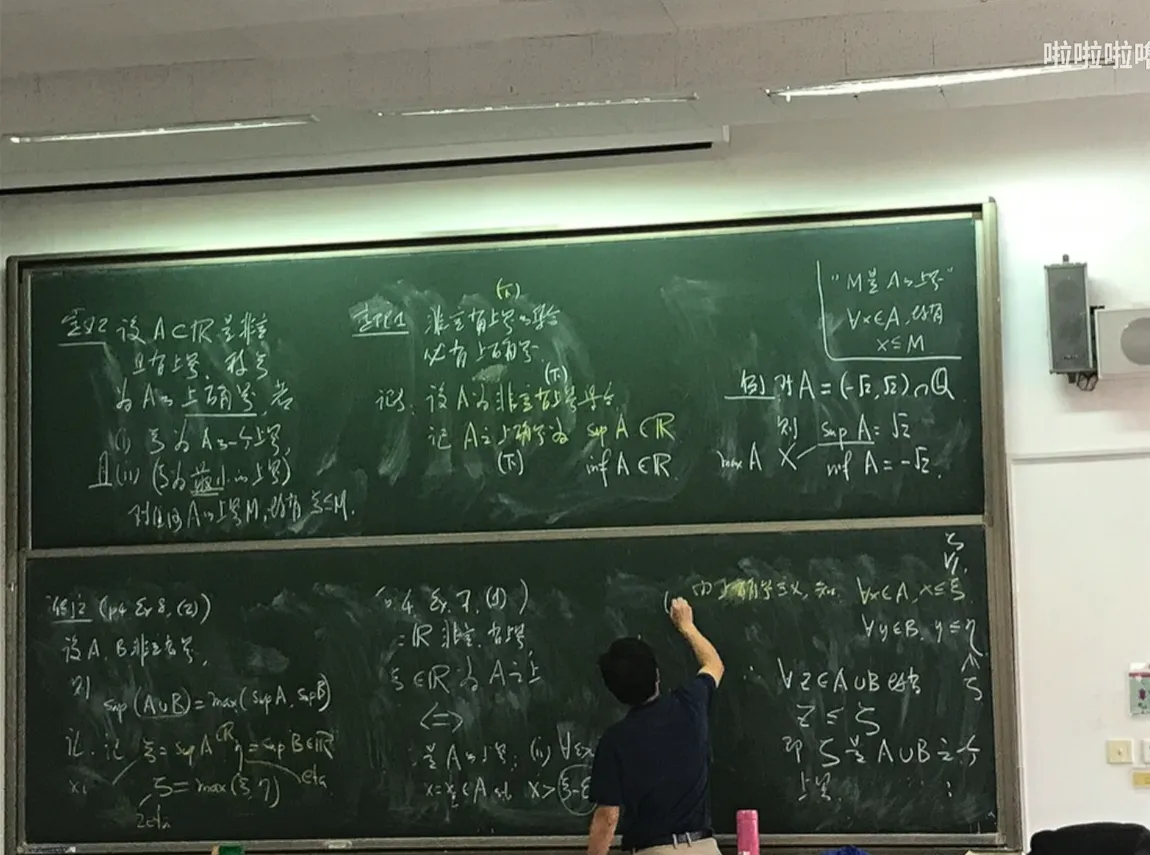 啦啦啦
定义2 设 A⊂ℝ 是非空
且有上界, 称ξ
为 A 的上确界, 若
(i) ξ 为 A 的一个上界
且(ii) (ξ为最小的上界)
对任何 A 的上界 M, 均有 ξ≤M.
定理1 非空有上界的集合
(下)
必有上确界.
记号. 设 A 为非空有上界集合
(下)
记 A 之上确界为 sup A ∈ ℝ
(下) inf A ∈ ℝ.
"M是 A 的上界"
∀x∈A, 均有
x≤M
例1 对 A = (-√2, √2)∩ℚ
则 sup A = √2
max A X inf A = -√2.
例2 (p4 Ex 8, (2))
设 A, B 非空有界,
则
sup(A∪B) = max(supA, supB)
证. 记 ξ = sup A∈ℝ η = sup B∈ℝ
xi eta
ζ = max(ξ, η)
zeta
4, Ex. 7, (1))
ℝ 非空, 有上界,
ξ∈ℝ 为 A 之上
<=>
是 A 的上界; (ii) ∀ε>
∈A s.t. x > ξ-ε
由上确界定义, 知 ∀x∈A, x≤ξ ≤ ζ
∀y∈B, y≤η ≤ ζ
∴ ∀z∈A∪B 均有
z ≤ ζ
即 ζ 是 A∪B 之一个
上界.